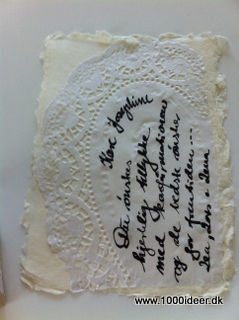 Kære Josephine
Du ønskes
hjertelig tillykke
med
og de bedste ønsker
for fremtiden...
www.1000ideer.dk